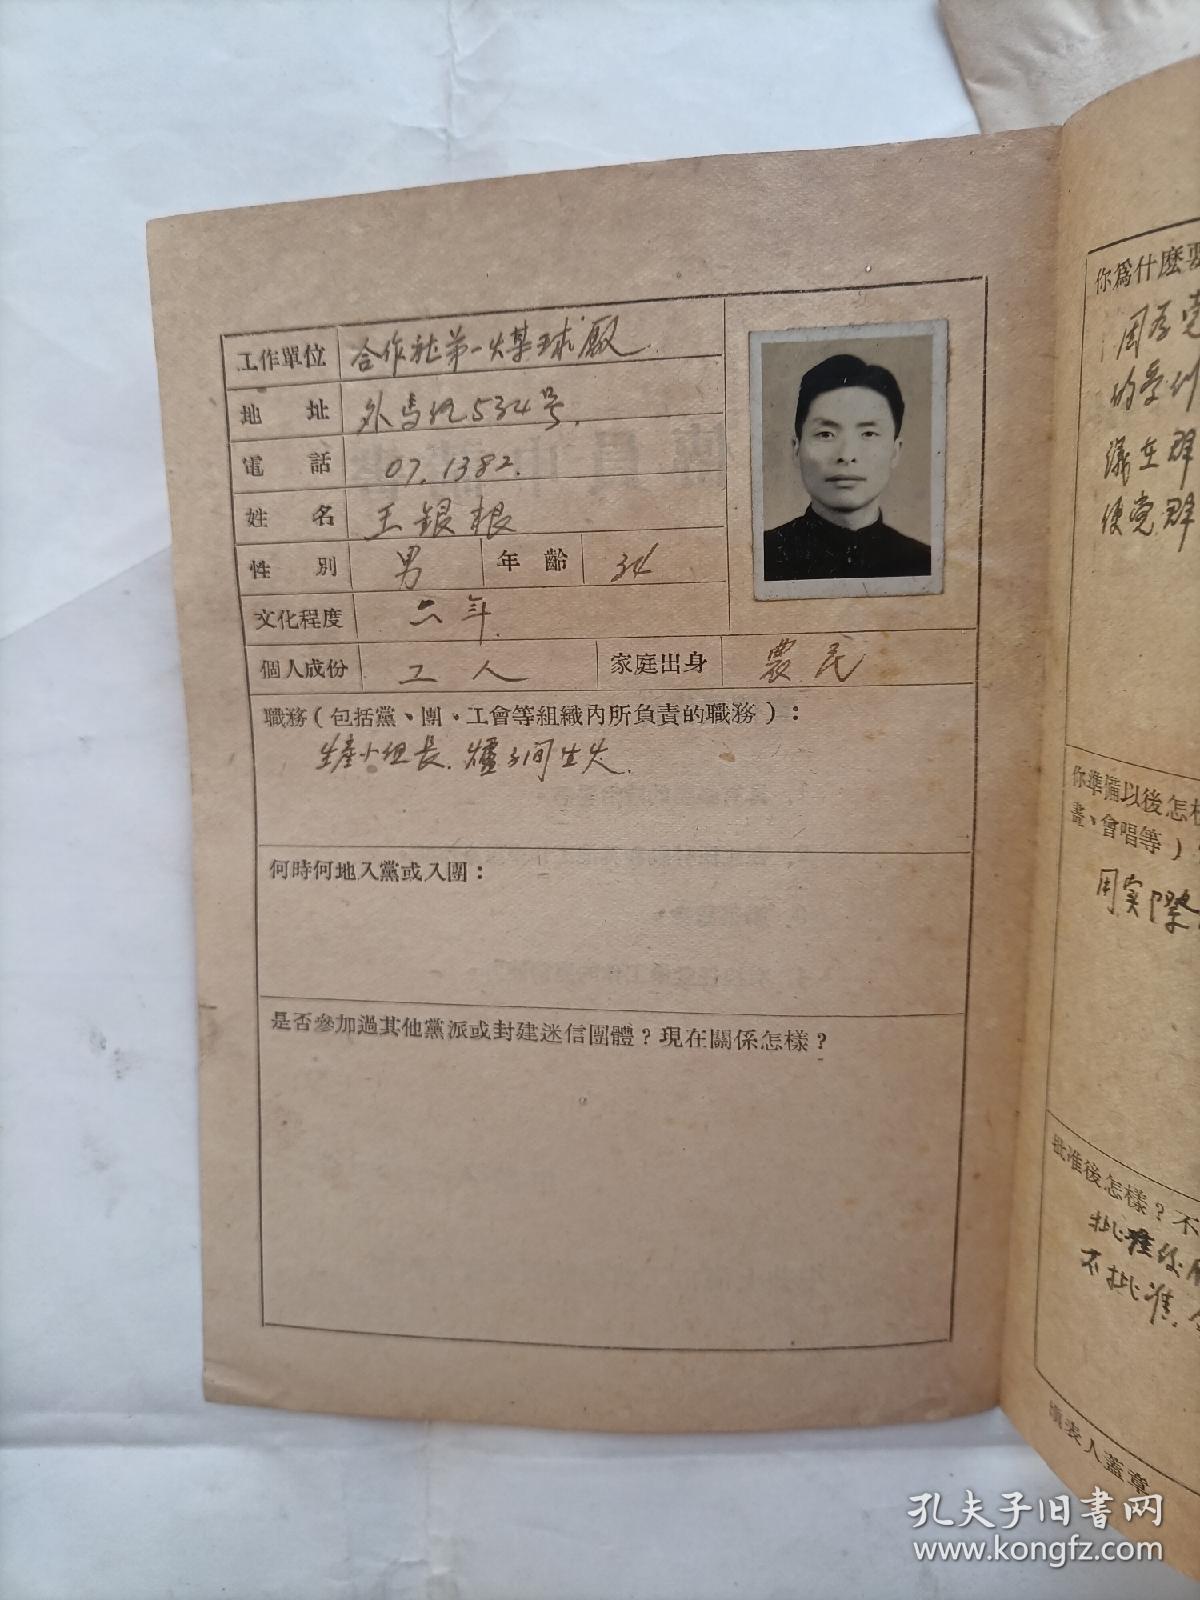 工作單位 合作社第一煤球廠
地址 外馬路534号
電話 07.1382.
姓名 王銀根
性別 男 年齡 34
文化程度 六年
個人成份 工人 家庭出身 農民
職務(包括黨、團、工會等組織內所負責的職務):
生產小组長. 爐子间生火.
何時何地入黨或入團:
是否參加過其他黨派或封建迷信團體?現在關係怎樣?
你爲什麼要
的
在群
使党群
你準備以後怎樣
畫、會唱等)
用实際
批准後怎樣?不
批准後
不批准.
填表人蓋章
孔夫子旧书网
www.kongfz.com